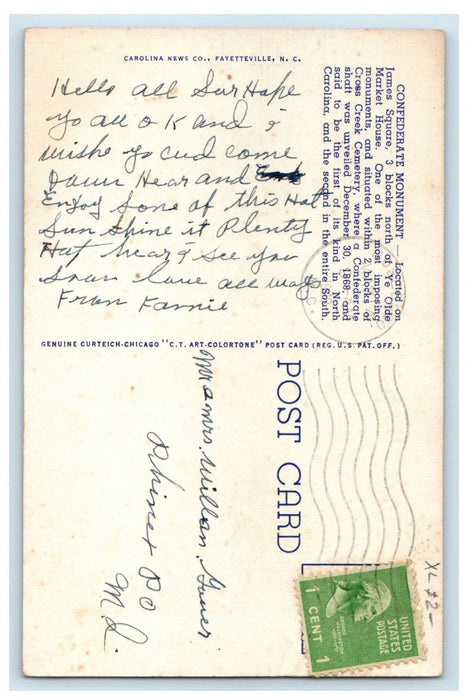 CAROLINA NEWS CO., FAYETTEVILLE, N. C.
Hello all Sur Hope
yo all o K and i
wishe yo cud come
Down Hear and
Enjoy some of this Hot
Sun shine it Plenty
Hot hear i see you
Soon love all ways
From Fannie
CONFEDERATE MONUMENT — Located on
James Square, 3 blocks north of Ye Olde
Market House. One of the most imposing
monuments, and situated within 2 blocks of
Cross Creek Cemetery, where a Confederate
shaft was unveiled December 30, 1868, and
said to be the first of its kind in North
Carolina, and the second in the entire South.
GENUINE CURTEICH-CHICAGO "C.T. ART-COLORTONE" POST CARD (REG. U.S. PAT. OFF.)
POST CARD
Mr & mrs. Willian.
M d.
UNITED
STATES
POSTAGE
GEORGE
WASHINGTON
1 CENT 1
XL $2–